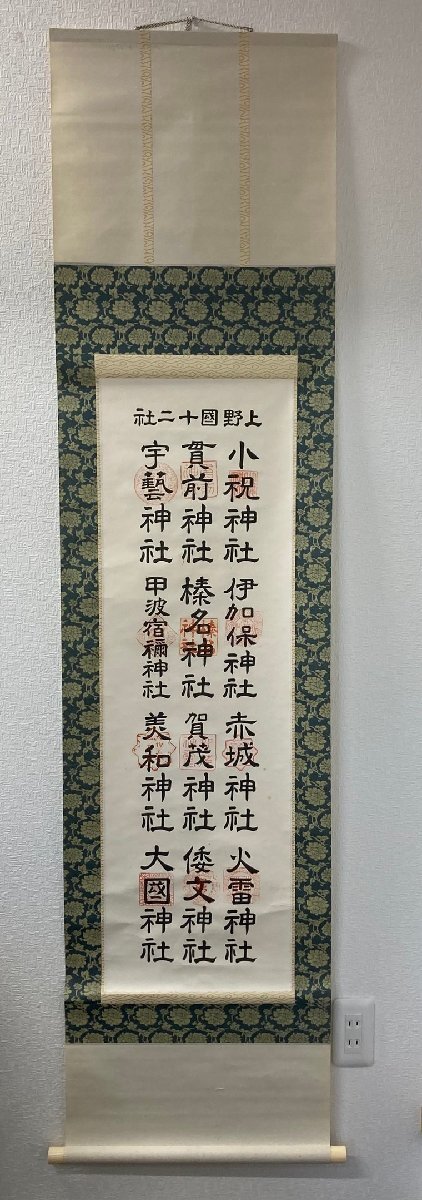 上野國十二社
小祝神社 伊加保神社 赤城神社 火雷神社
貫前神社 榛名神社 賀茂神社 倭文神社
宇藝神社 甲波宿禰神社 美和神社 大國神社